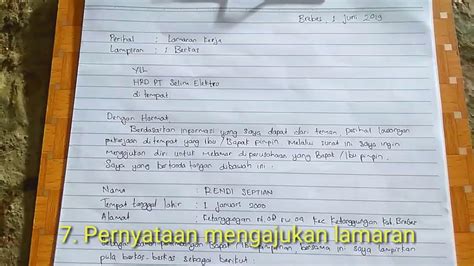 Brebes, 1 Juni 2019
Perihal : Lamaran Kerja
Lampiran : 1 Berkas
Yth.
HRD PT Selim Elektro
di tempat
Dengan Hormat,
Berdasarkan informasi yang saya dapat dari teman, perihal lowongan
pekerjaan di tempat yang Ibu / Bapak pimpin. Melalui surat ini saya ingin
mengajukan diri untuk melamar diperusahaan yang Bapak / Ibu pimpin.
Saya yang bertanda tangan dibawah ini :
Nama : RENDI SEPTIAN
Tempat tanggal lahir : 1 Januari 2000
Alamat : Ketanggungan rt.08 rw.02 kec. ketanggungan kab Brebes
7. Pernyataan mengajukan lamaran
bersama ini saya lampirkan
pula berkas-berkas sebagai berikut :